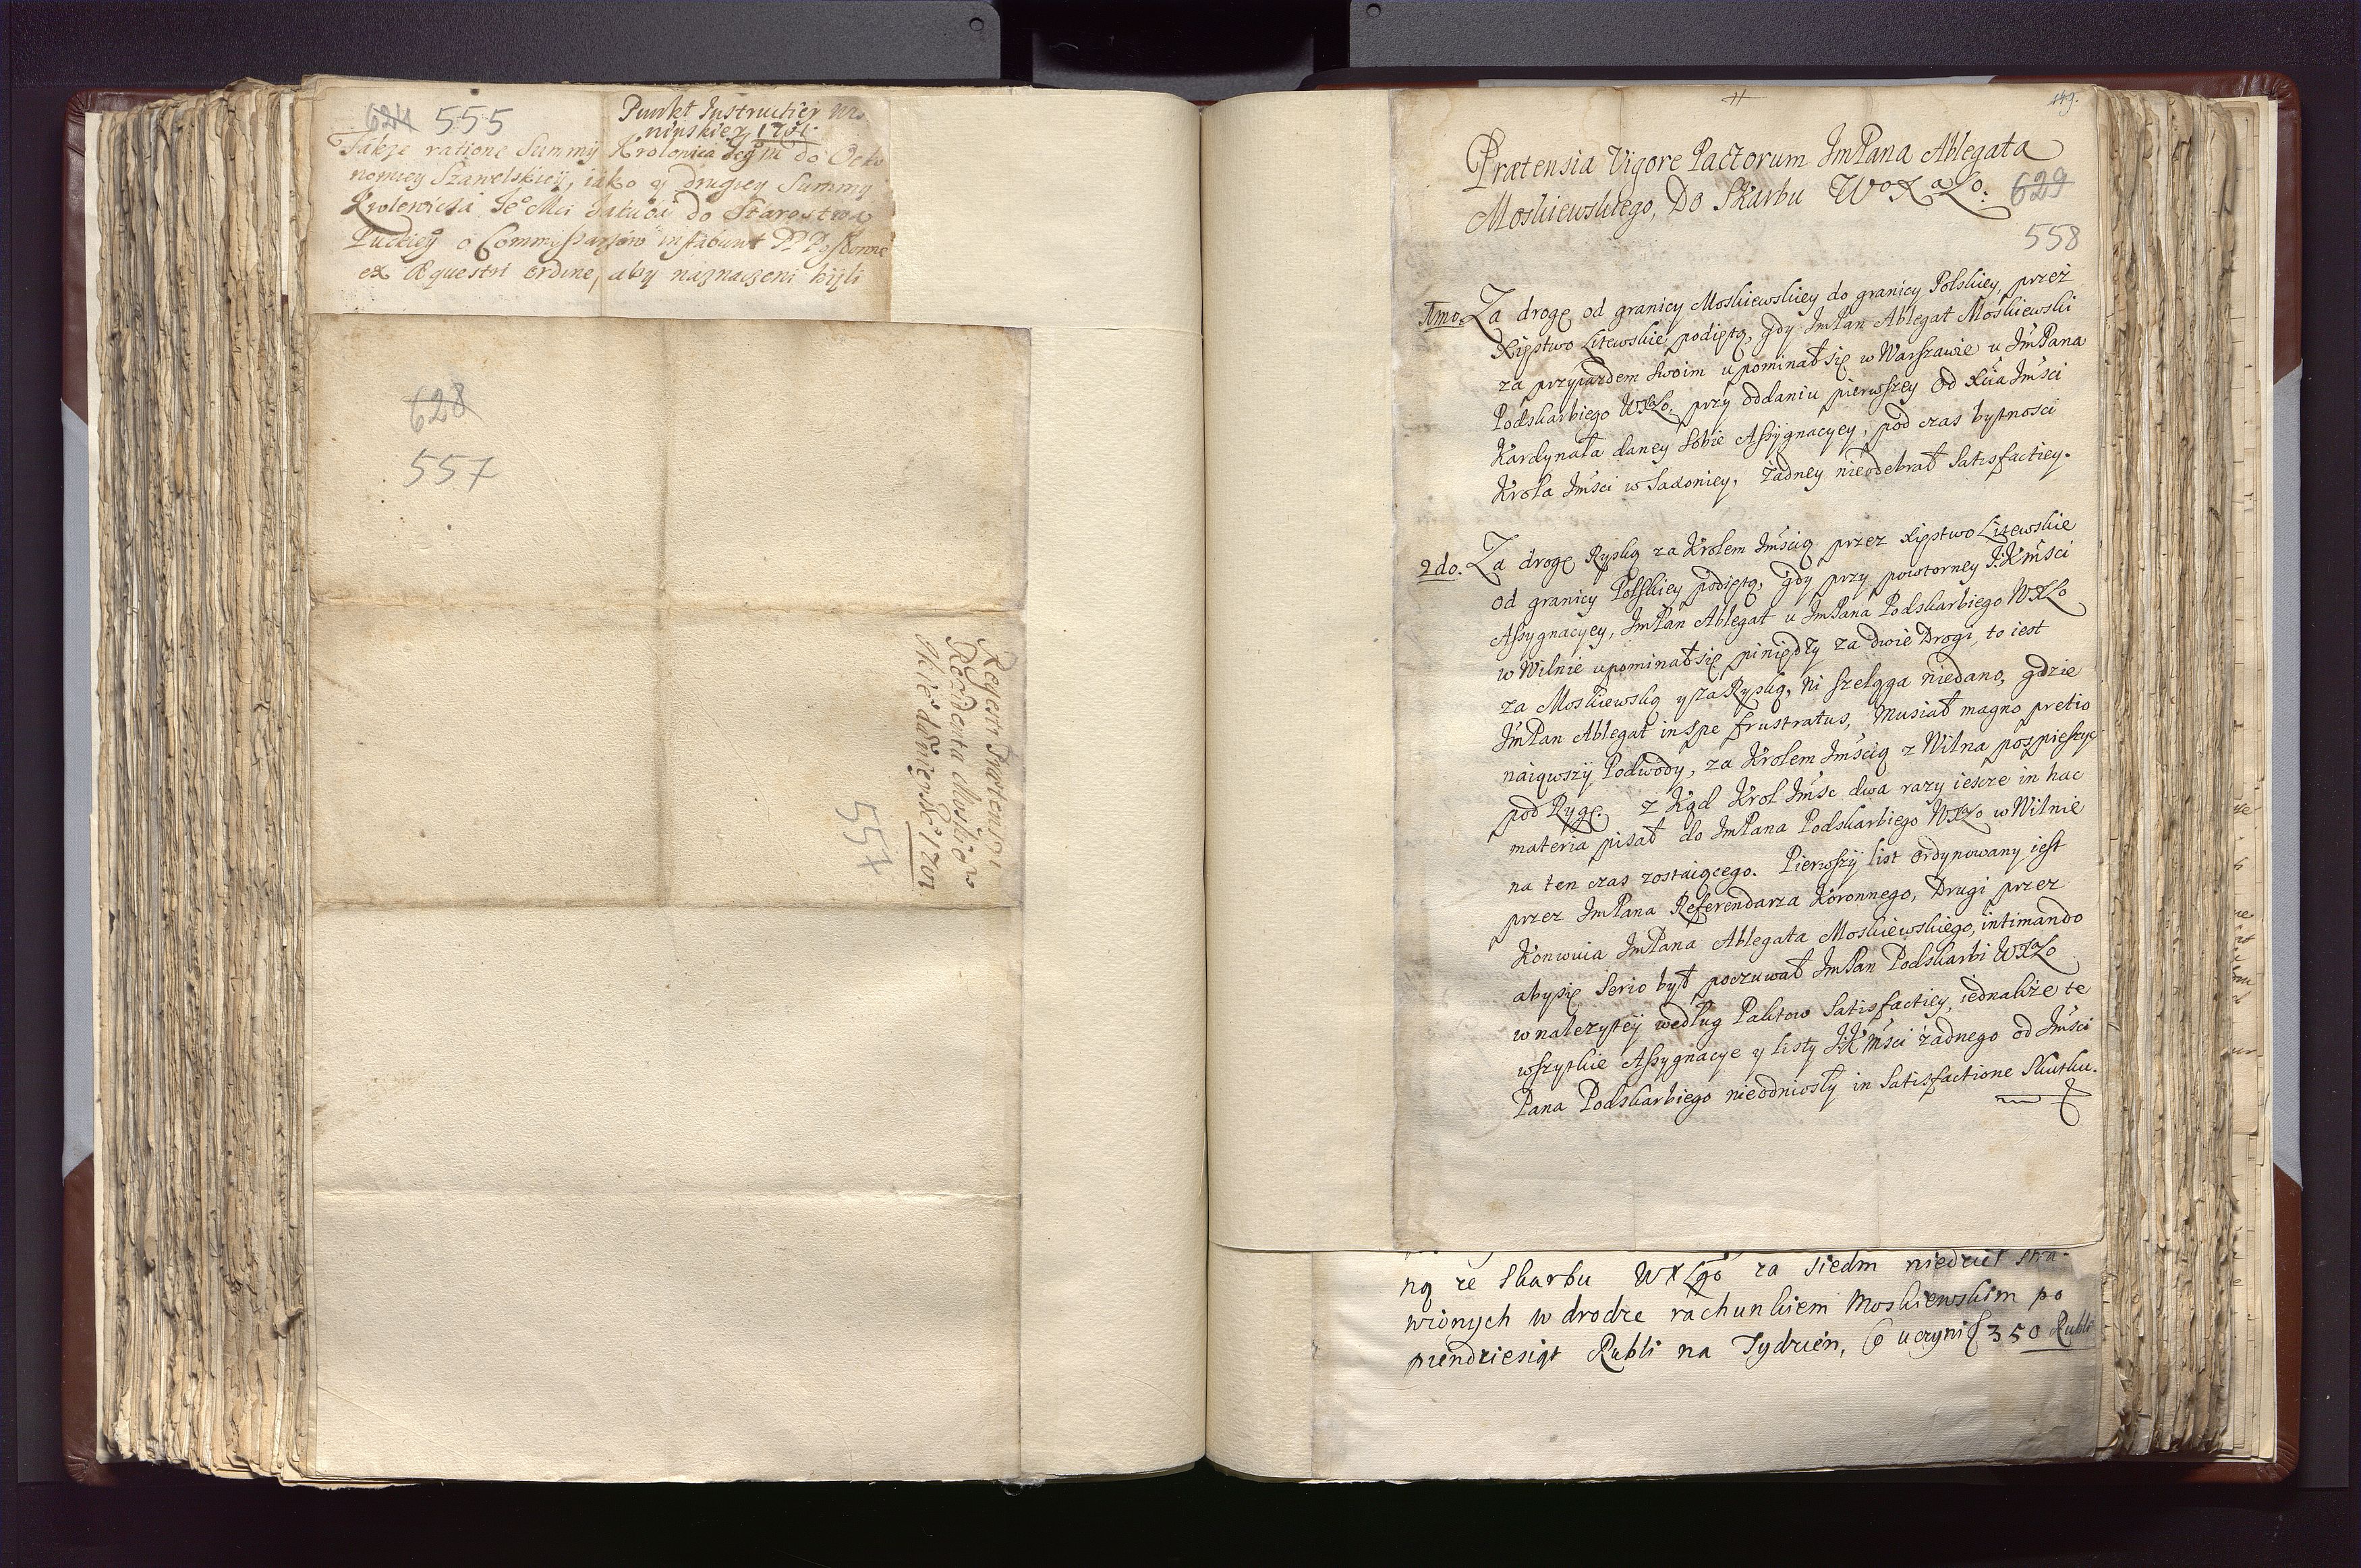 624 555
Punkt Instructiey
1701.
Takze ratione Summy Krolowica Jeg m do Oeko
nomiey Szawelskiey, iako y drugiey Summy
Krolewicza Je° Mci Jakuba do Starostwa
Puckiey o Commissarzow instabunt PP Posłowie
ex Equestri ordine, aby naznaczeni byli
628
557
Regestr Praetensyi
Rezidenta Moskiew
557.
149.
Prætensia Vigore Pactorum ImPana Ablegata
Moskiewskiego, Do Skarbu W° X a L°. 629
558
1mo. Za drogę od granicy Moskiewskiey do granicy Polskiey, przez
Xięstwo Litewskie podiętą, gdy ImPan Ablegat Moskiewski
za przyiazdem swoim upominał się w Warszawie u ImPana
Podskarbiego WXLo. przy oddaniu pierwszey od Xcia Imsci
Kardynała daney sobie Assygnacyey, pod czas bytnosci
Krola Imsci w Saxoniey, żadney nieodebrał Satisfactiey.
2do. Za drogę Ryską za Krolem Imscią przez Xięstwo Litewskie
od granicy Polskiey podiętą, gdy przy powtorney J:K msci
Assygnacyey, ImPan Ablegat u ImPana Podskarbiego WXLo
w Wilnie upominał się piniędzy za dwie Drogi, to iest
za Moskiewską y za Ryską, ni szeląga niedano, gdzie
ImPan Ablegat in spe frustratus, Musiał magno pretio
naiąwszy Podwody, za Krolem Imscią z Wilna pospieszyc
pod Rygę. z kąd Krol Imsc dwa razy iescze in hac
materia pisał do ImPana Podskarbiego WXLo w Wilnie
na ten czas zostaiącego. Pierwszy list ordynowany iest
przez ImPana Referendarza Koronnego, Drugi przez
Konwuia ImPana Ablegata Moskiewskiego, intimando
aby się serio był poczuwał ImPan Podskarbi WXLo
w nalezytey według Paktow Satisfactiey, iednakże te
wszystkie Assygnacye y listy J:K msci żadnego od Imsci
Pana Podskarbiego nieodniosły in Satisfactione Skutku.
ną ze Skarbu WXLgo za siedm niedziel stra-
wionych w drodze rachunkiem Moskiewskim po
piendziesiąt Rubli na Tydzien, Co uczyni 350 Rubli